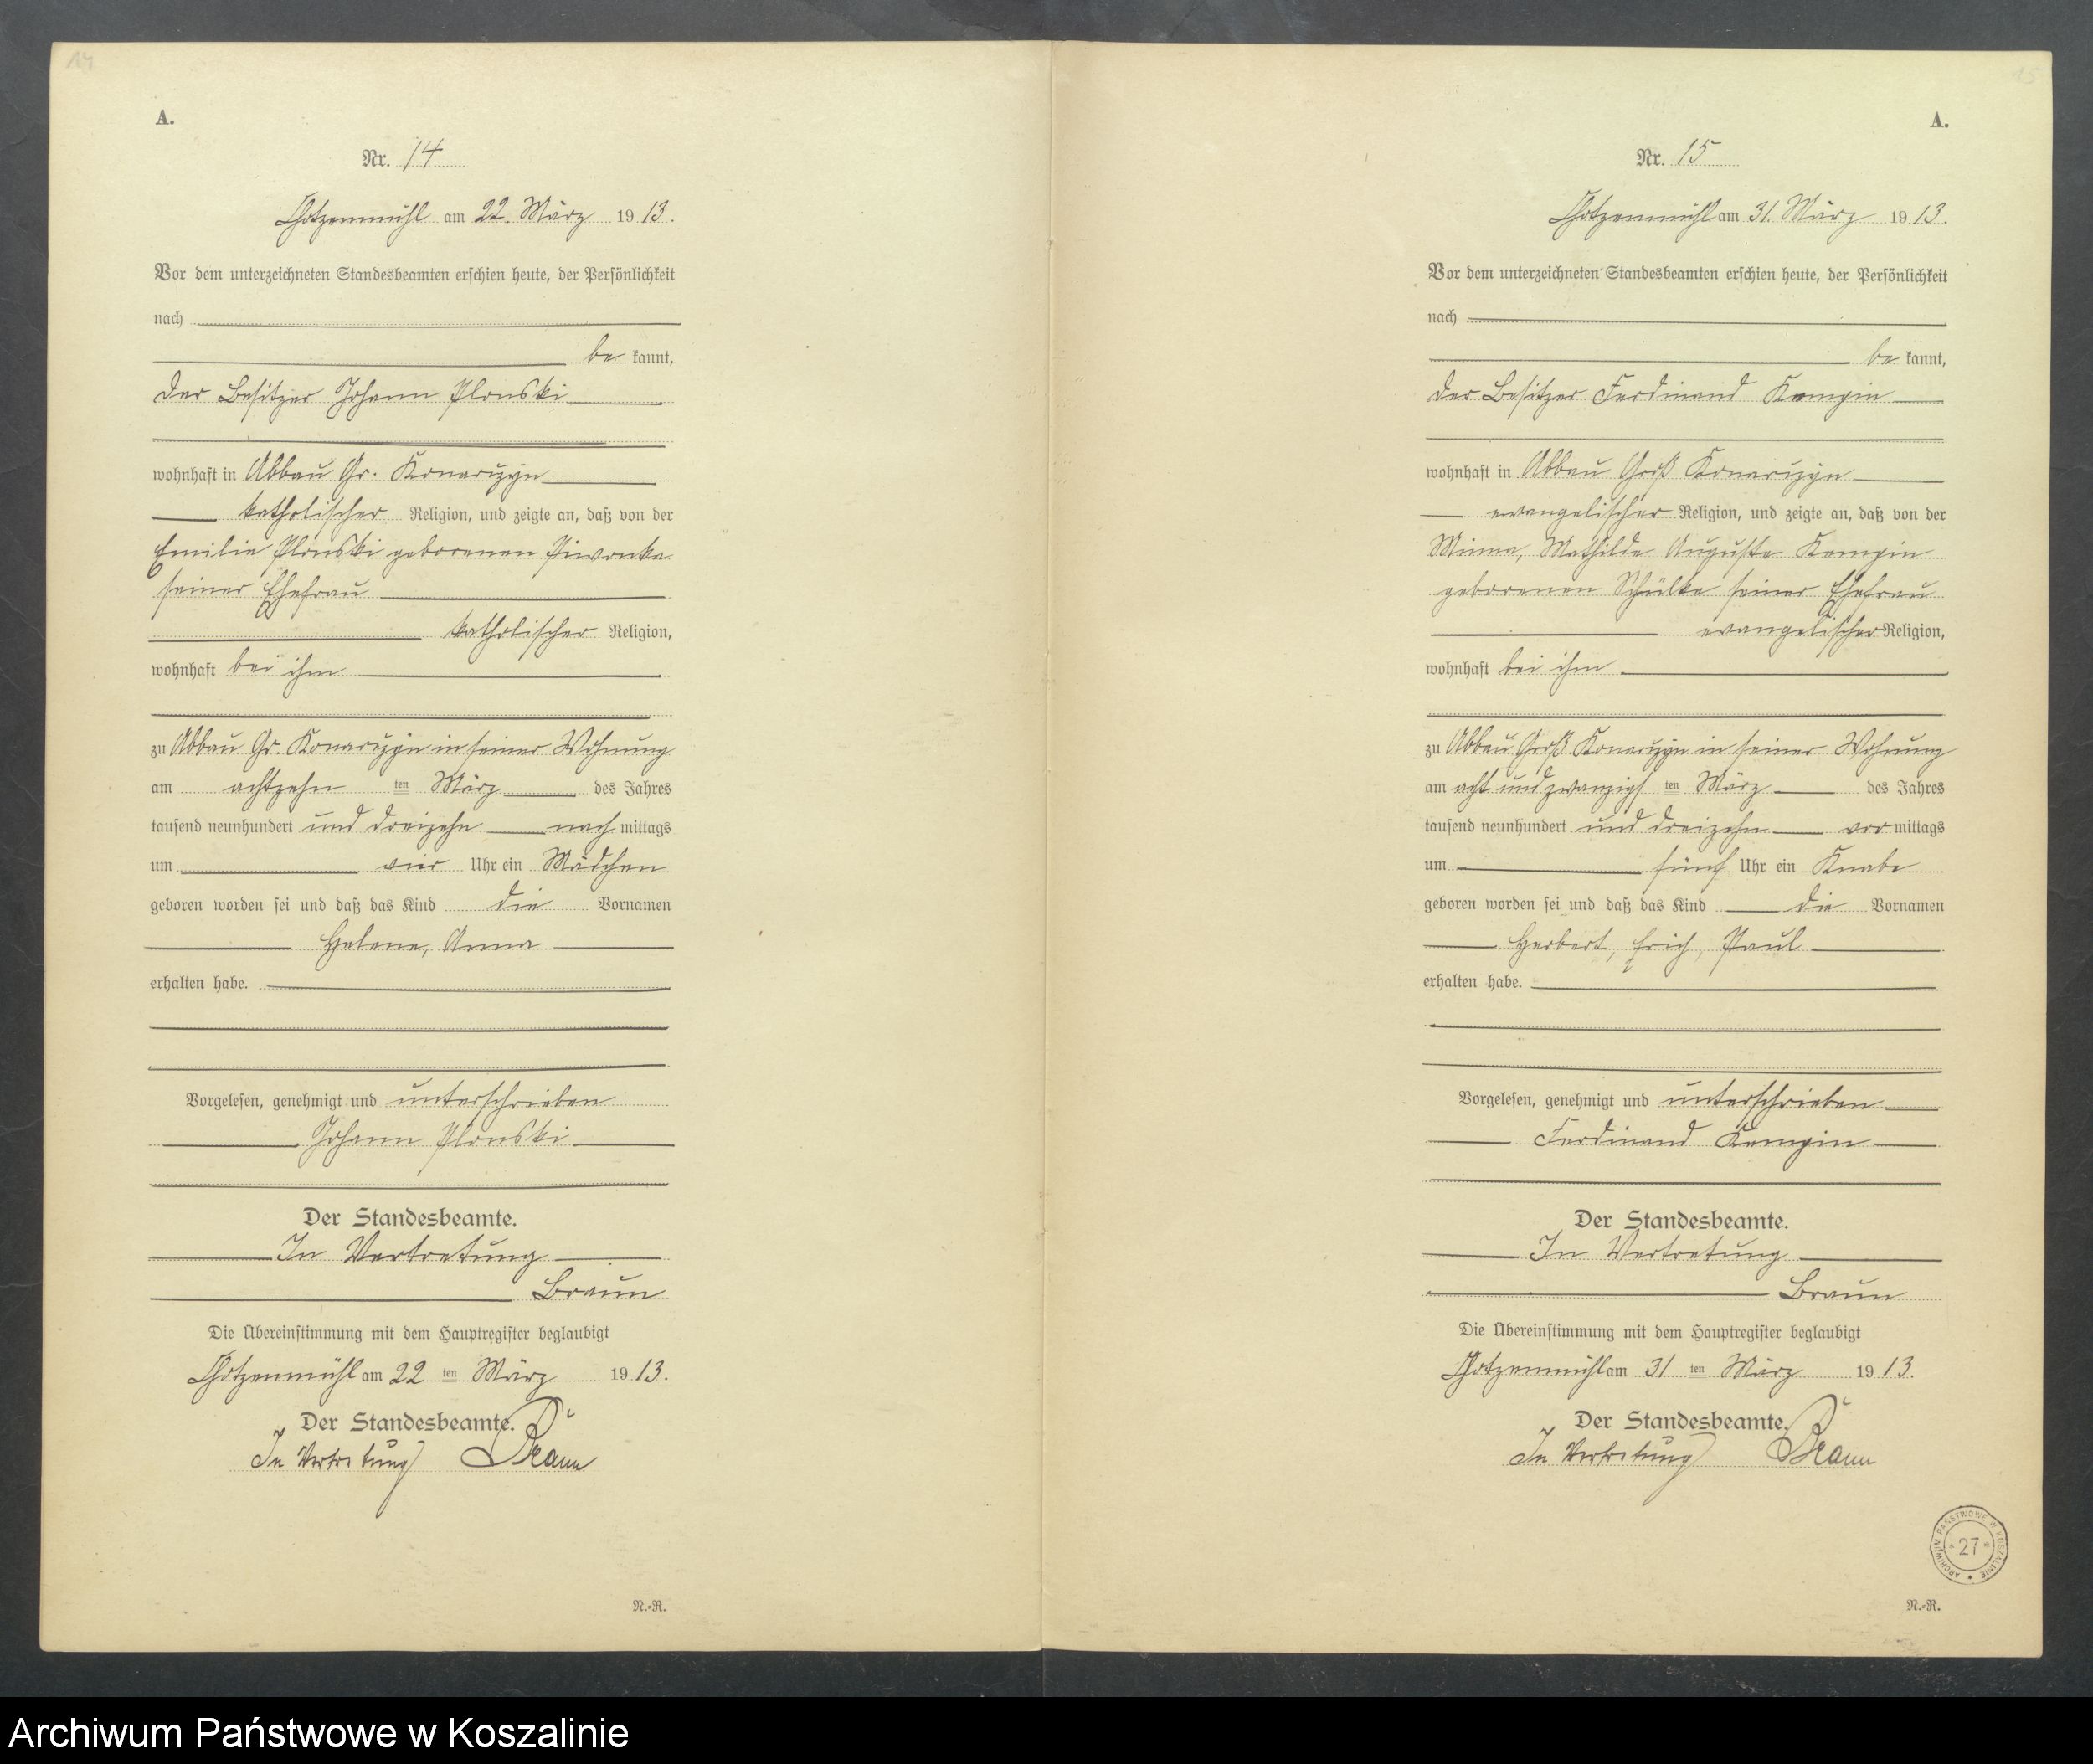 14
A.
Nr. 14
Chotzenmühl am 22. März 1913.
Vor dem unterzeichneten Standesbeamten erschien heute, der Persönlichkeit
nach
be kannt,
der Besitzer Johann Plonski
wohnhaft in Abbau Gr. Konarzyn
katholischer Religion, und zeigte an, daß von der
Emilie Plonski geborenen Piwonka
seiner Ehefrau
katholischer Religion,
wohnhaft bei ihm
zu Abbau Gr. Konarzyn in seiner Wohnung
am achtzehn ten März des Jahres
tausend neunhundert und dreizehn nach mittags
um vier Uhr ein Mädchen
geboren worden sei und daß das Kind die Vornamen
Helene, Anna
erhalten habe.
Vorgelesen, genehmigt und unterschrieben
Johann Plonski
Der Standesbeamte.
In Vertretung
Braun
Die Übereinstimmung mit dem Hauptregister beglaubigt
Chotzenmühl am 22 ten März 1913.
Der Standesbeamte.
In Vertretung Braun
N.-R.
15
A.
Nr. 15
Chotzenmühl am 31. März 1913.
Vor dem unterzeichneten Standesbeamten erschien heute, der Persönlichkeit
nach
be kannt,
der Besitzer Ferdinand Kempin
wohnhaft in Abbau Groß Konarzyn
evangelischer Religion, und zeigte an, daß von der
Minna, Mathilde Auguste Kempin
geborenen Schülke seiner Ehefrau
evangelischer Religion,
wohnhaft bei ihm
zu Abbau Groß Konarzyn in seiner Wohnung
am acht und zwanzigs ten März des Jahres
tausend neunhundert und dreizehn vor mittags
um fünf Uhr ein Knabe
geboren worden sei und daß das Kind die Vornamen
Herbert, Erich, Paul
erhalten habe.
Vorgelesen, genehmigt und unterschrieben
Ferdinand Kempin
Der Standesbeamte.
In Vertretung
Braun
Die Übereinstimmung mit dem Hauptregister beglaubigt
Chotzenmühl am 31 ten März 1913.
Der Standesbeamte.
In Vertretung Braun
ARCHIWUM PAŃSTWOWE W KOSZALINIE
* 27 *
N.-R.
Archiwum Państwowe w Koszalinie